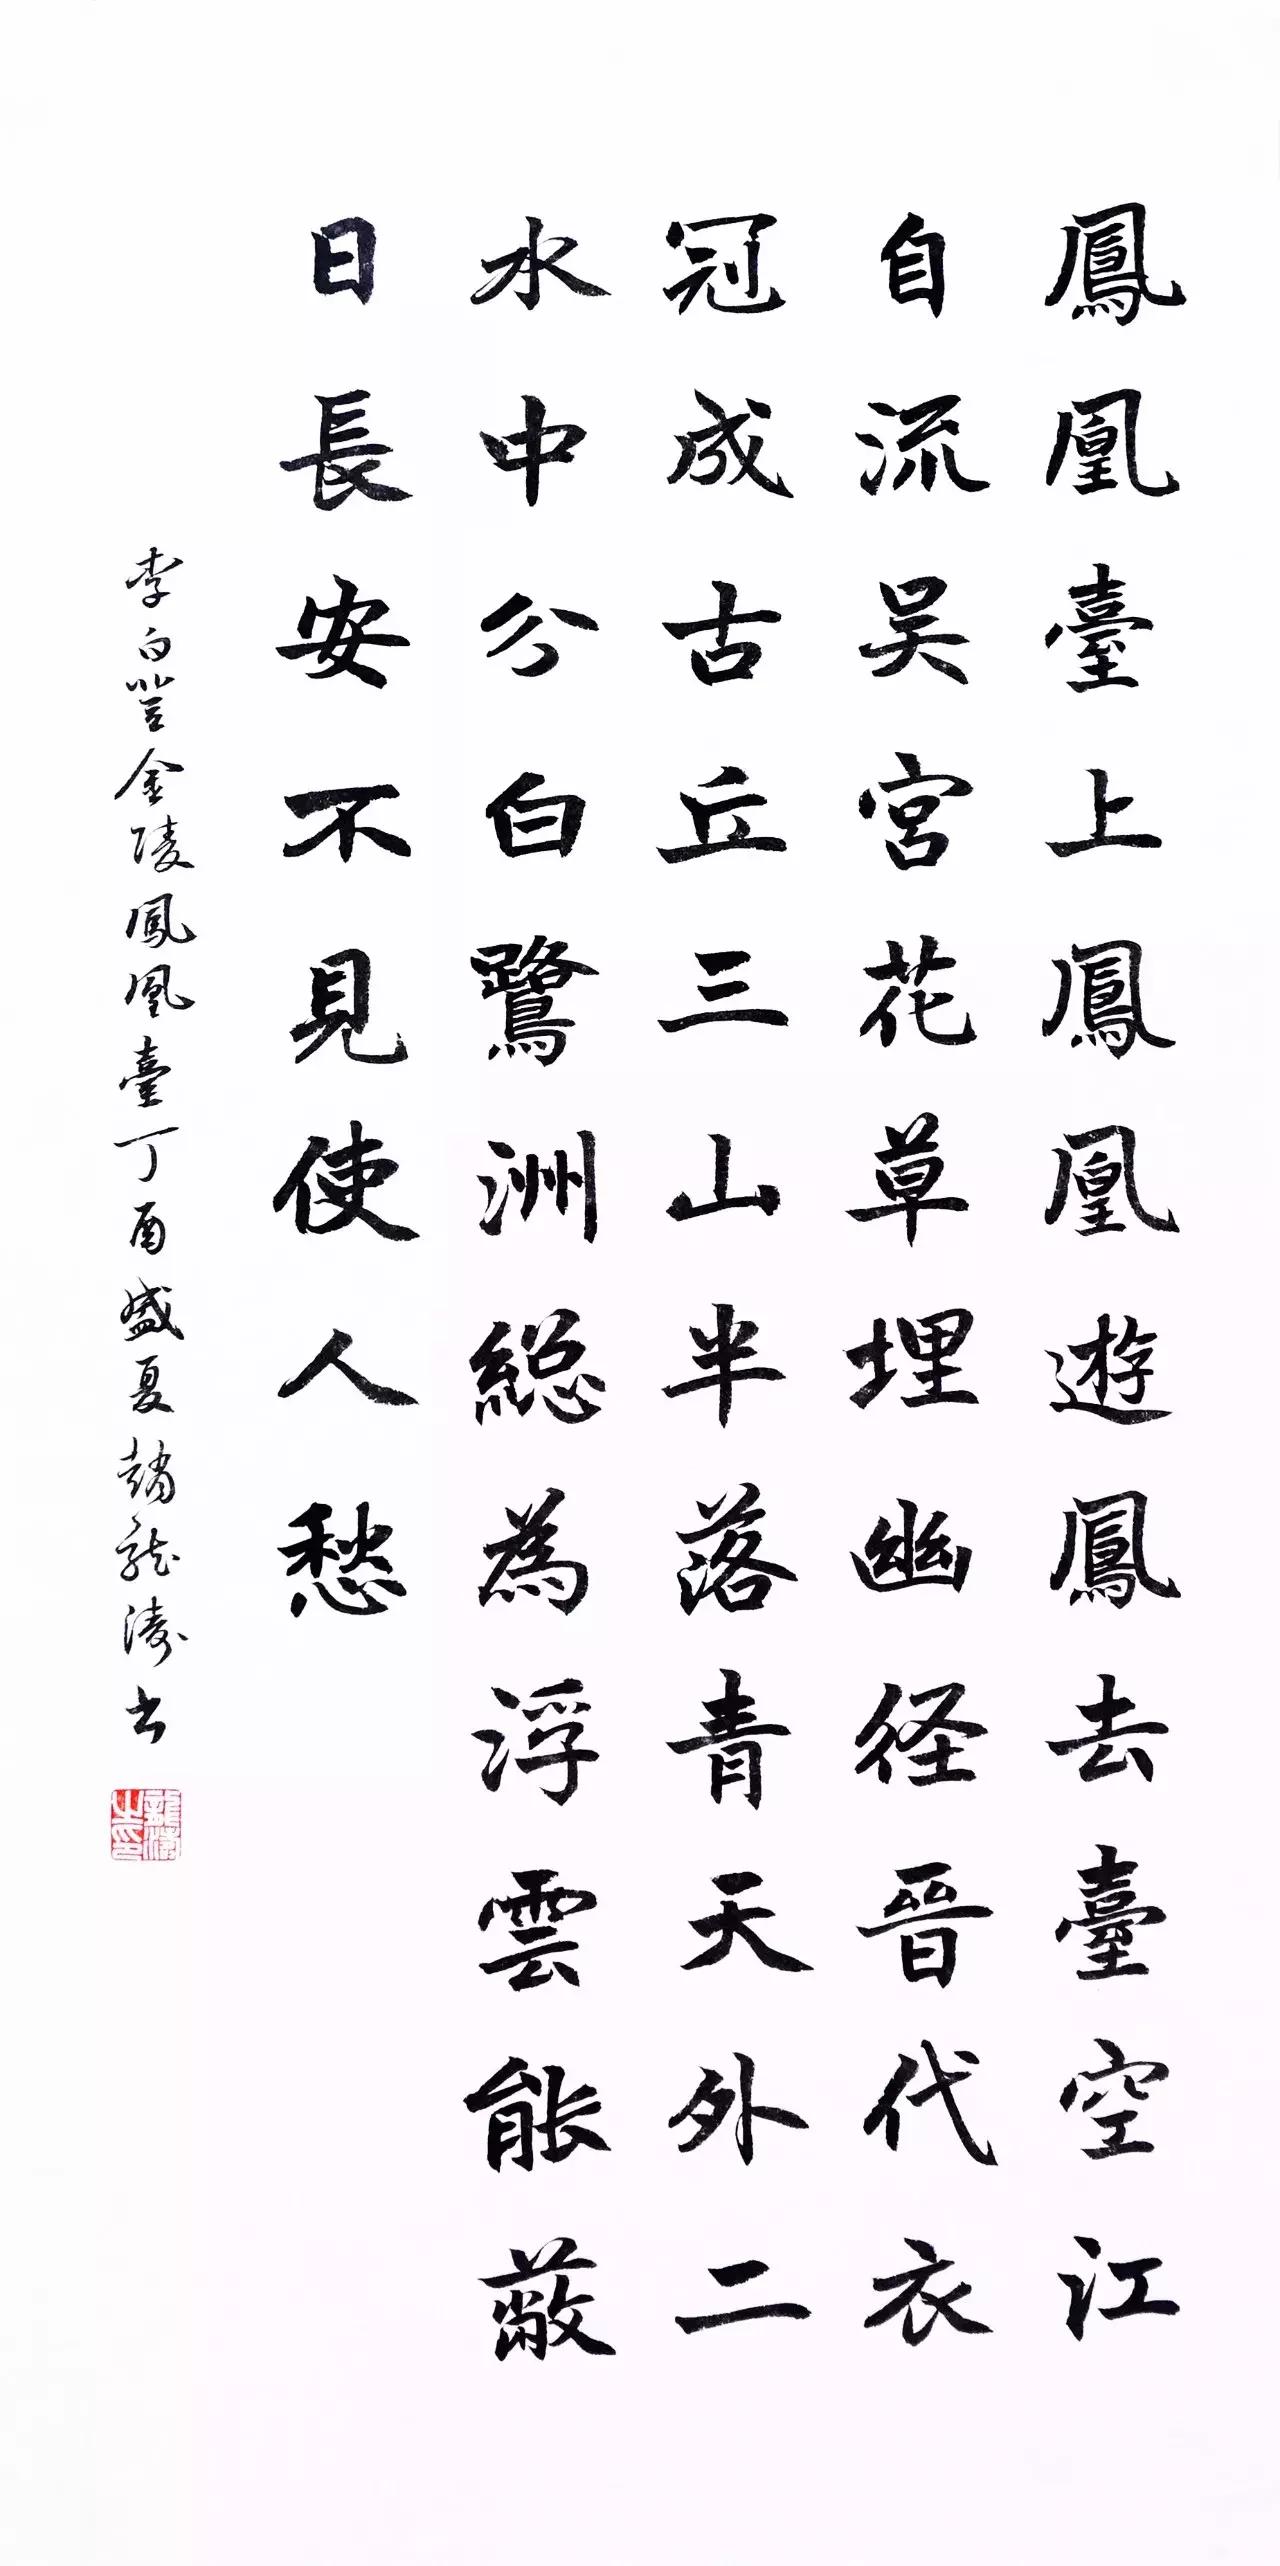 鳳凰臺上鳳凰遊鳳去臺空江
自流吴宮花草埋幽径晉代衣
冠成古丘三山半落青天外二
水中分白鷺洲総為浮雲能蔽
日長安不見使人愁
李白登金陵鳳凰臺丁酉盛夏趙龍濤书
龍濤之印